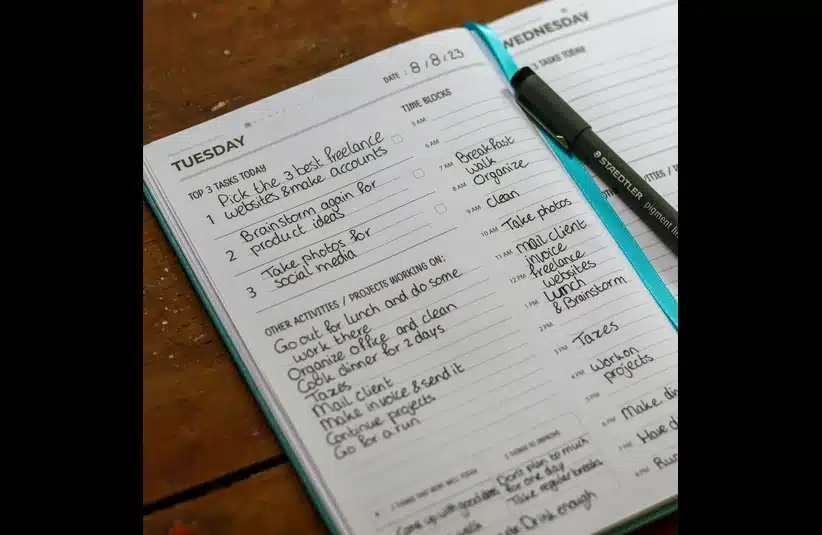 TUESDAY
DATE : 8/8/23
TOP 3 TASKS TODAY
1 Pick the 3 best freelance
websites & make accounts
2 Brainstorm again for
product ideas
3 Take photos for
social media
OTHER ACTIVITIES / PROJECTS WORKING ON:
Go out for lunch and do some
work there
Organize office and clean
Cook dinner for 2 days
Taxes
Mail client
Make invoice & send it
Continue projects
Go for a run
TIME BLOCKS
5 AM
6 AM
7 AM Breakfast
walk
8 AM Organize
9 AM clean
10 AM Take photos
11 AM mail client
invoice
12 PM freelance
websites
1 PM Lunch
& Brainstorm
2 PM
3 PM Taxes
4 PM Work on
projects
5 PM
6 PM Make din
7 PM Have d
8 PM Run
3 THINGS THAT WENT WELL TODAY
Come up with good
well
3 THINGS TO IMPROVE
Don't plan to much
for one day
Take regular breaks
Drink enough
WEDNESDAY
3 TASKS TODAY
STAEDTLER
pigment lin